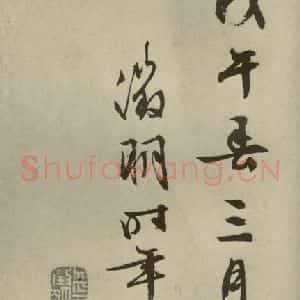 戊午春三月
徵明时年
Shufawang.CN